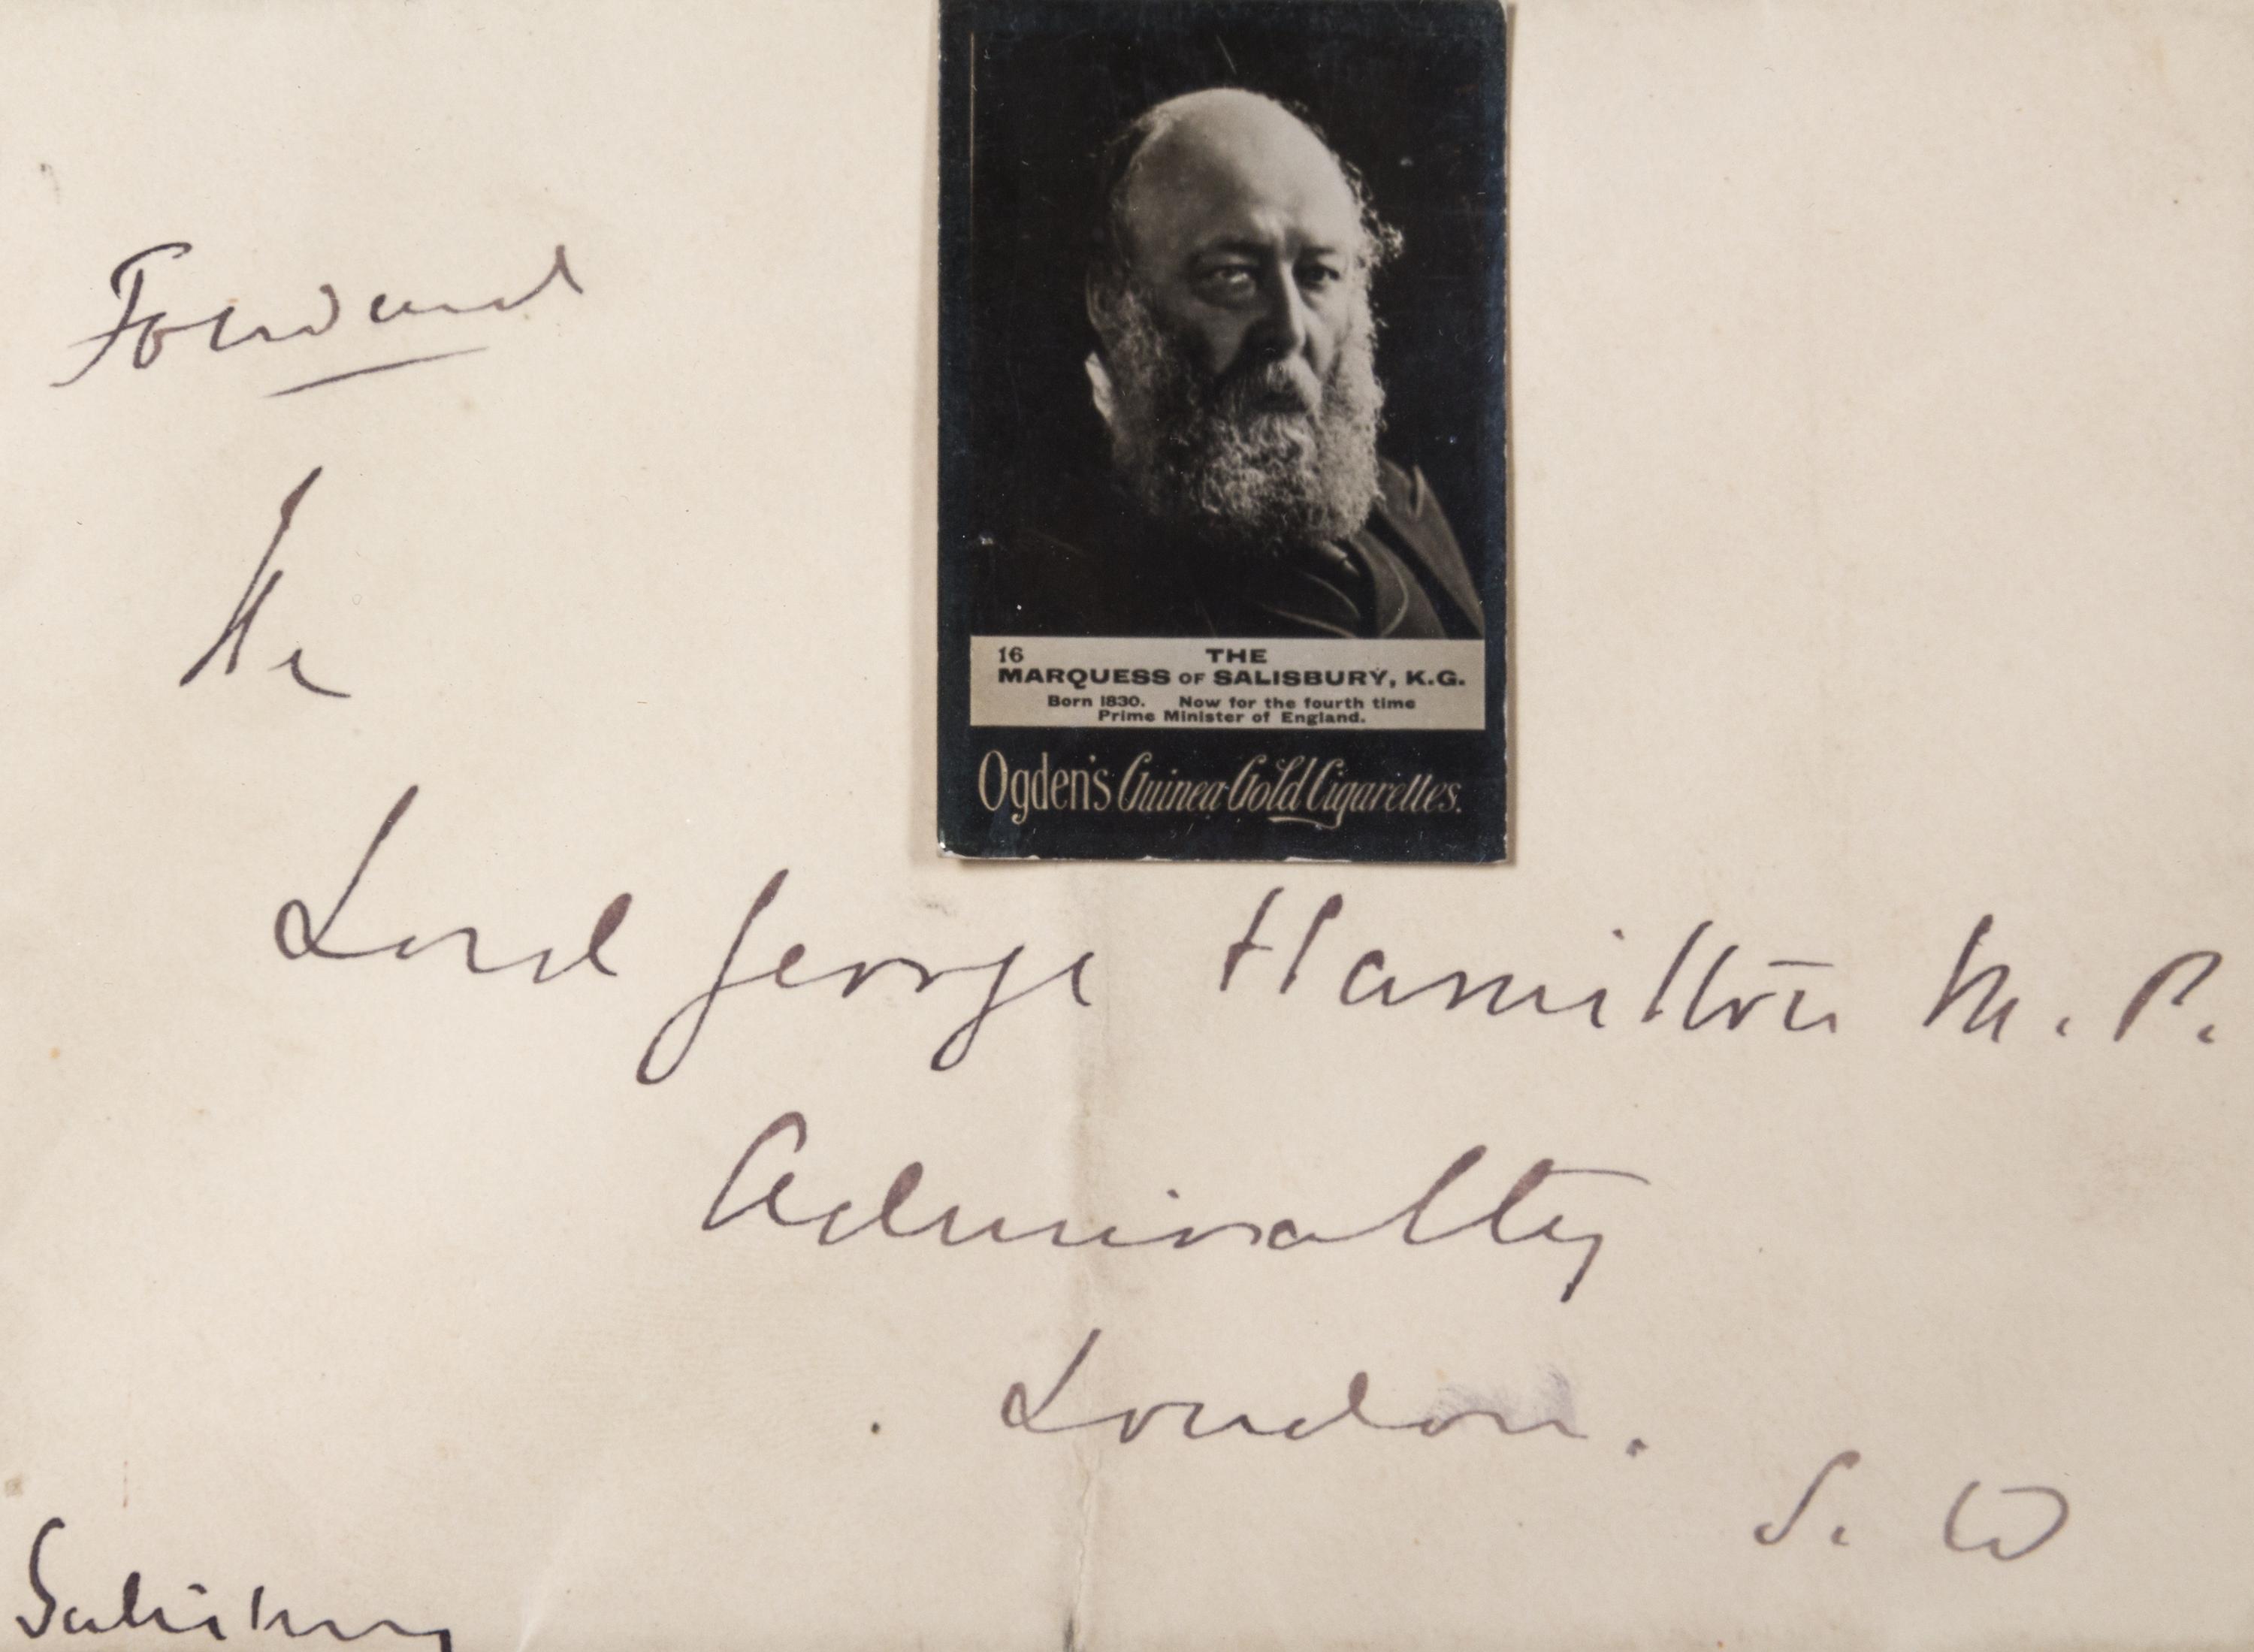 Forward
The
Lord George Hamilton M.P.
Admiralty
London.
S. W
Salisbury
16 THE
MARQUESS OF SALISBURY, K.G.
Born 1830. Now for the fourth time
Prime Minister of England.
Ogden's Guinea Gold Cigarettes.